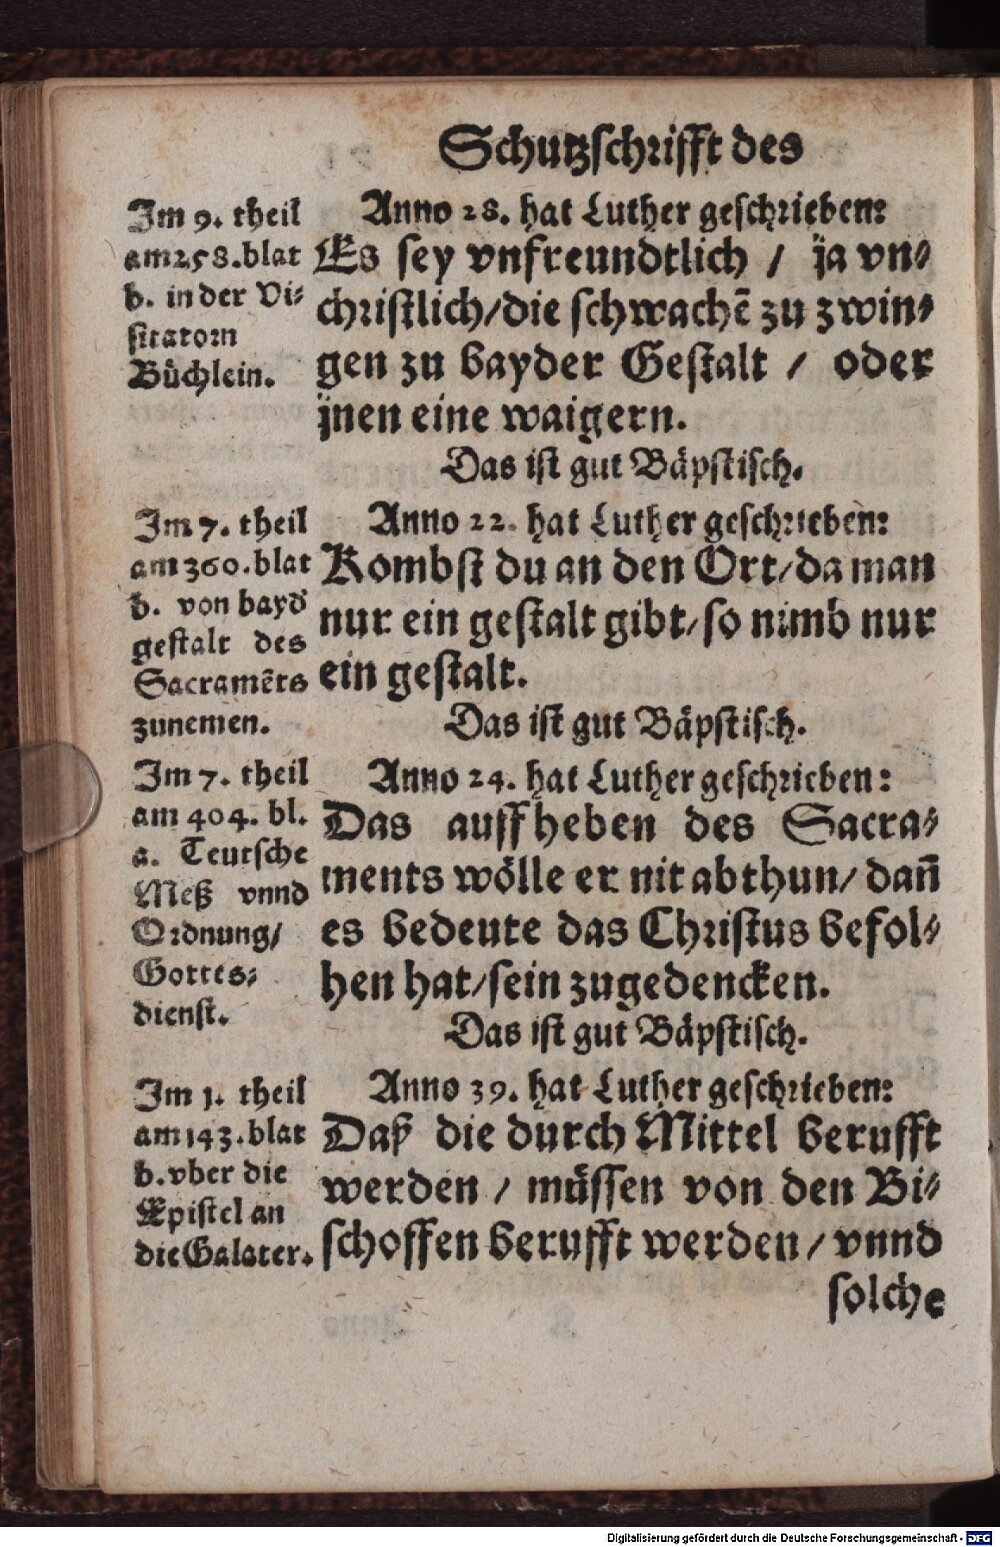 Schutzschrifft des
Im 9. theil
am 258. blat
b. in der Vi⸗
sitatorn
Büchlein.
Anno 28. hat Luther geschrieben:
Es sey vnfreundtlich / ja vn⸗
christlich/die schwachē zu zwin⸗
gen zu bayder Gestalt / oder
jnen eine waigern.
Das ist gut Bäpstisch.
Im 7. theil
am 360. blat
b. von bayd
gestalt des
Sacramēts
zunemen.
Anno 22. hat Luther geschrieben:
Kombst du an den Ort/da man
nur ein gestalt gibt/so nimb nur
ein gestalt.
Das ist gut Bäpstisch.
Im 7. theil
am 404. bl.
a. Teutsche
Meß vnnd
Ordnung/
Gottes⸗
dienst.
Anno 24. hat Luther geschrieben:
Das auffheben des Sacra⸗
ments wölle er nit abthun/ dañ
es bedeute das Christus befol⸗
hen hat/sein zugedencken.
Das ist gut Bäpstisch.
Im 1. theil
am 143. blat
b. vber die
Epistel an
die Galater.
Anno 39. hat Luther geschrieben:
Daß die durch Mittel berufft
werden / müssen von den Bi⸗
schoffen berufft werden / vnnd
solche
Digitalisierung gefördert durch die Deutsche Forschungsgemeinschaft - DFG